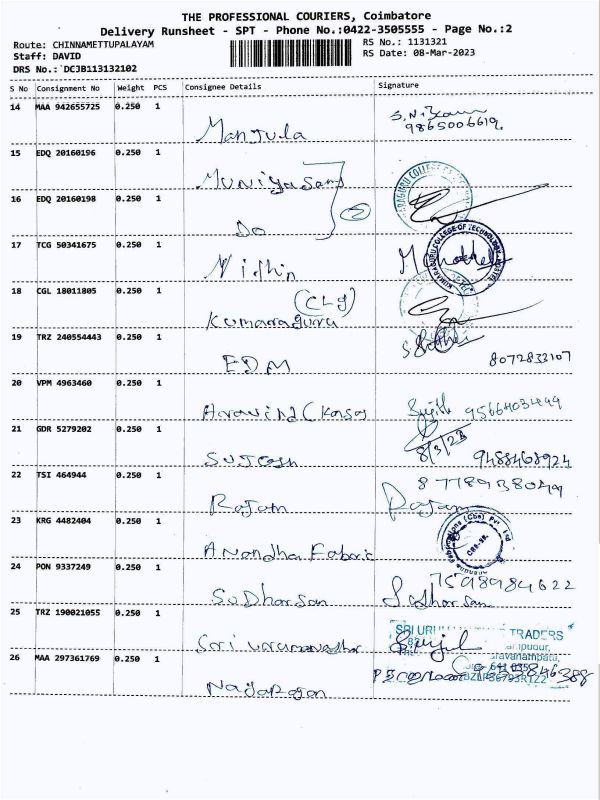 THE PROFESSIONAL COURIERS, Coimbatore
Delivery Runsheet - SPT - Phone No.:0422-3505555 - Page No.:2
Route: CHINNAMETTUPALAYAM
RS No.: 1131321
Staff: DAVID
RS Date: 08-Mar-2023
DRS No.: DCJB113132102
S No Consignment No Weight PCS Consignee Details Signature
14 MAA 942655725 0.250 1
Manjula
9865006619
15 EDQ 20160196 0.250 1
Muniyasamy
16 EDQ 20160198 0.250 1
Do
2
17 TCG 50341675 0.250 1
Nithin
KUMARAGURU COLLEGE OF TECHNOLOGY
18 CGL 18011805 0.250 1
(CLG)
Kumaraguru
19 TRZ 240554443 0.250 1
EDM
8072833107
20 VPM 4963460 0.250 1
Aravind
Sujith
21 GDR 5279202 0.250 1
8/3/23
9488468924
22 TSI 464944 0.250 1
Rajam
Rajam
23 KRG 4482404 0.250 1
Anandha Fabric
(Cbe) Pvt. Ltd
24 PON 9337249 0.250 1
SuDharsan
7598984622
Sudharsan
25 TRZ 190021055 0.250 1
Sari
TRADERS
26 MAA 297361769 0.250 1
Nagarajan
641 035